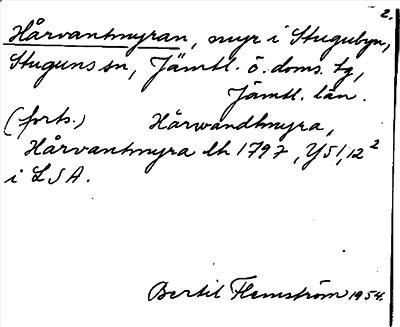 2.
Hårvantmyran, myr i Stugubyn,
Stuguns sn, Jämtl. ö. doms. tg,
Jämtl. län.
(forts.) Hårwandtmyra,
Hårvantmyra lh 1797, Y51, 12²
i LSA.
Bertil Flemström 1954.